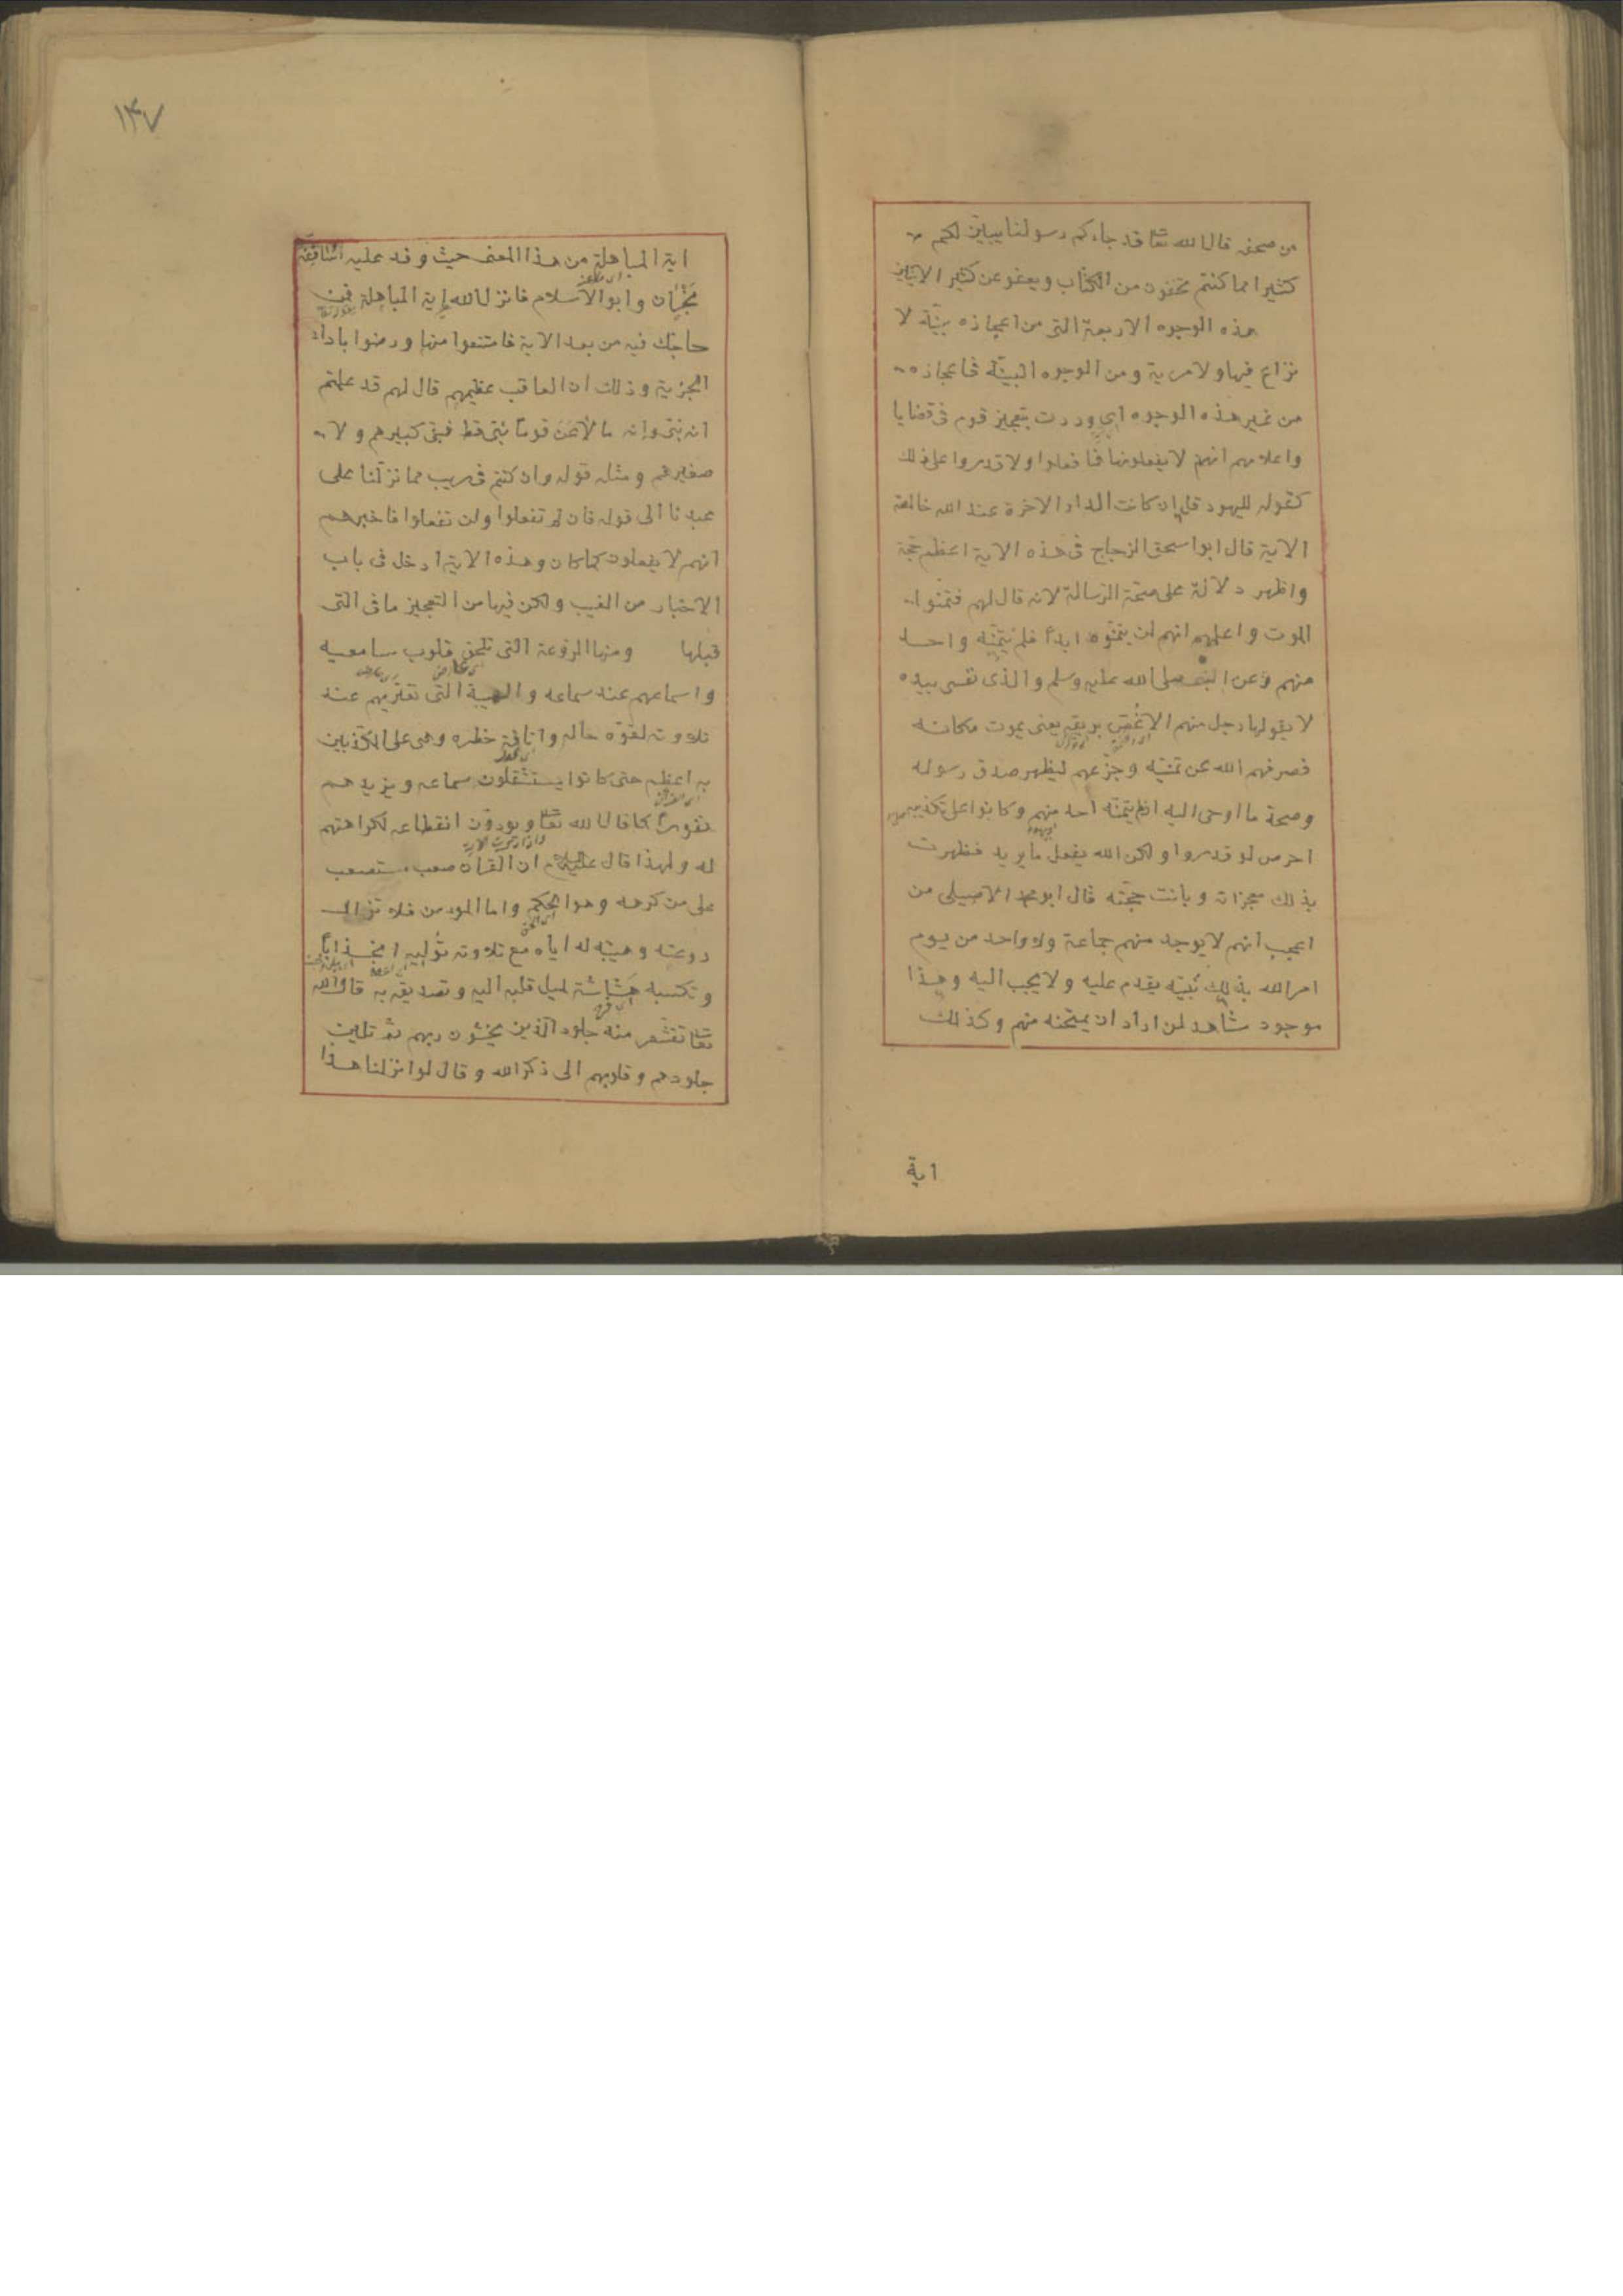 من صحف قال الله تعا قد جاءكم رسولنا يبين لكم
كثيرا مما كنتم تخفون من الكتاب ويعفو عن كثير الايتين
هذه الوجوه الاربعة التى من اعجازه بينة لا
نزاع فيها ولا مرية ومن الوجوه البينة فى اعجازه
من غير هذه الوجوه اى وردت بتعجيز قوم فى قضايا
واعلامهم انهم لا يفعلونها فما فعلوا ولا قدروا على ذلك
كقوله لليهود قل ان كانت الدار الاخرة عند الله خالصة
الاية قال ابو اسحق الزجاج فى هذه الاية اعظم حجة
واظهر دلالة على صحة الرسالة لانه قال لهم فتمنوا
الموت واعلمهم انهم لن يتمنوه ابدا فلم يتمنه واحد
منهم وعن النبى صلى الله عليه وسلم والذى نفسى بيده
لا يقولها رجل منهم الا غُصّ بريقه يعنى يموت مكانه
فصرفهم الله عن تمنيه وجزعهم ليظهر صدق رسوله
وصحة ما اوحى اليه اذ لم يتمنه احد منهم وكانوا على تكذيبه
احرص لو قدروا ولكن الله يفعل ما يريد فظهرت
بذلك معجزاته وبانت حجته قال ابو محمد الاصيلى من
اعجب انهم لا يوجد منهم جماعة ولا واحد من يوم
امر الله بذلك نبيه يقدم عليه ولا يجب اليه وهذا
موجود شاهد لمن اراد ان يمتحنه منهم وكذلك
اية
١٣٧
اية المباهلة من هذا المعنى حيث وفد عليه اساقفة
نجران وابوا الاسلام فانزل الله اية المباهلة فمن
حاجك فيه من بعد الاية فامتنعوا منها ورضوا باداء
الجزية وذلك ان العاقب عظيمهم قال لهم قد علمتم
انه نبى وانه ما لاعن قوما نبى قط فبقى كبيرهم ولا
صغيرهم ومثله قوله وان كنتم فى ريب مما نزلنا على
عبدنا الى قوله فان لم تفعلوا ولن تفعلوا فاخبرهم
انهم لا يفعلون كما كان وهذه الاية ادخل فى باب
الاخبار من الغيب ولكن فيها من التعجيز ما فى التى
قبلها ومنها الروعة التى تلحق قلوب سامعيه
واسماعهم عند سماعه والهيبة التى تعتريهم عند
تلاوته لقوة حاله وانافة خطره وهى على المكذبين
به اعظم حتى كانوا يستثقلون سماعه ويزيدهم
نفورا كما قال الله تعا ويودون انقطاعه لكراهتهم
له ولهذا قال عليه السلام ان القرآن صعب مستصعب
على من كرهه وهو الحكم واما المومن فلا تزال
روعته وهيبته له اياه مع تلاوته تُوليه انجذابا
وتكسبه هشاشة لميل قلبه اليه وتصديقه به قال الله
تعا تقشعر منه جلود الذين يخشون ربهم ثم تلين
جلودهم وقلوبهم الى ذكر الله وقال لو انزلنا هذا